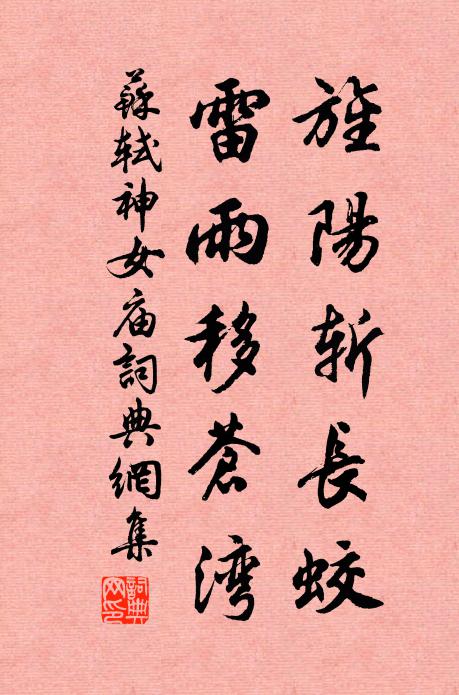 旌陽斬長蛟
雷雨移蒼灣
蘇軾神女庙詞典網集
詞典网印